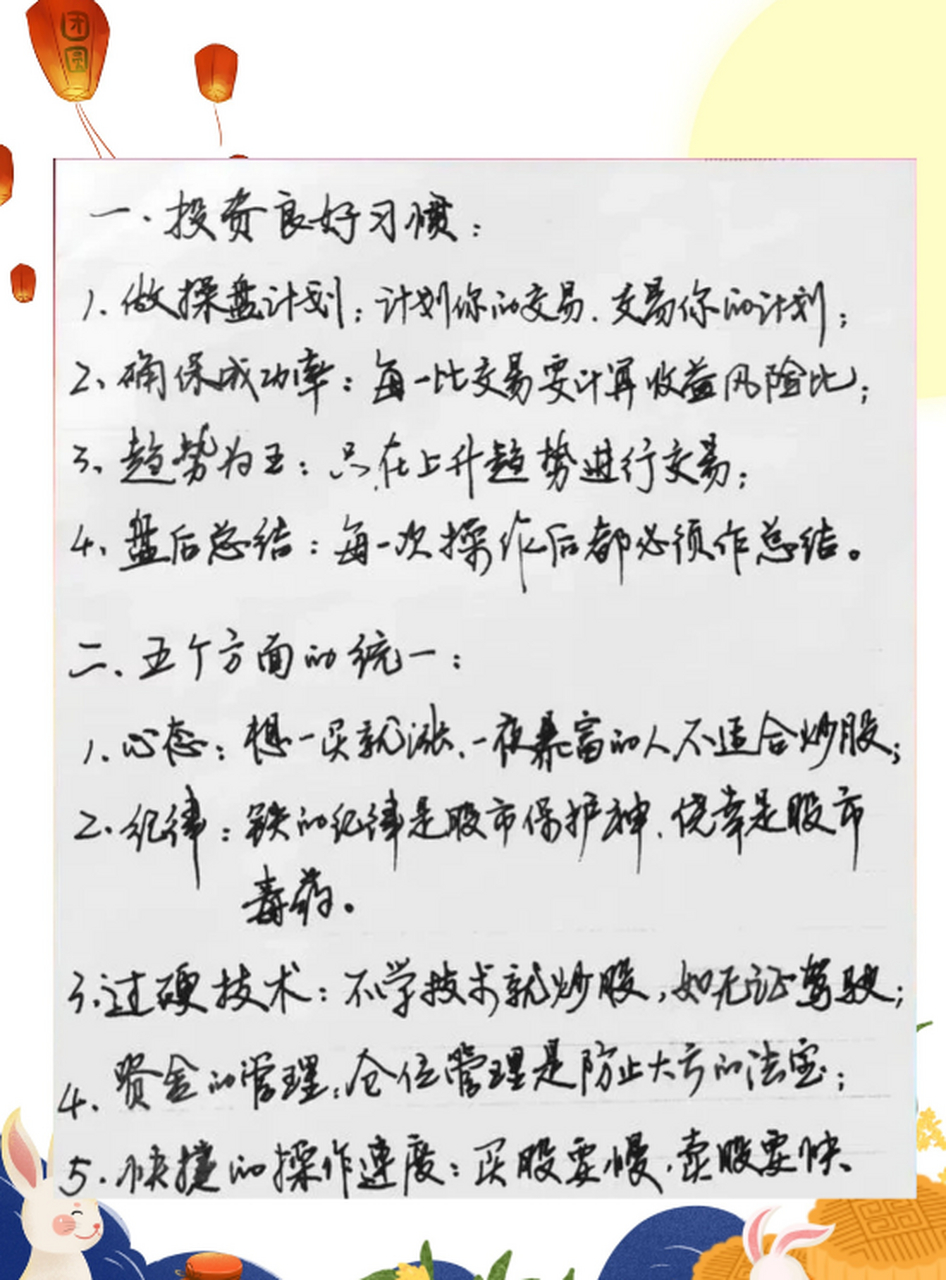 团
圆
一、投资良好习惯：
1、做操盘计划：计划你的交易、交易你的计划；
2、确保成功率：每一比交易要计算收益风险比；
3、趋势为王：只在上升趋势进行交易；
4、盘后总结：每一次操作后都必须作总结。
二、五个方面的统一：
1、心态：想一买就涨、一夜暴富的人不适合炒股；
2、纪律：铁的纪律是股市保护神、侥幸是股市
毒药。
3、过硬技术：不学技术就炒股，如无证驾驶；
4、资金的管理：仓位管理是防止大亏的法宝；
5、快捷的操作速度：买股要慢，卖股要快、